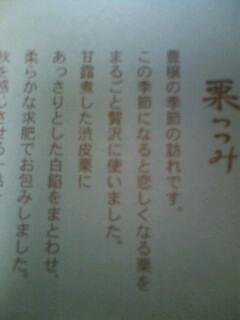 栗つつみ
豊穣の季節の訪れです。
この季節になると恋しくなる栗を
まるごと贅沢に使いました。
甘露煮した渋皮栗に
あっさりとした白餡をまとわせ、
柔らかな求肥でお包みしました。
秋を感じさせる一品